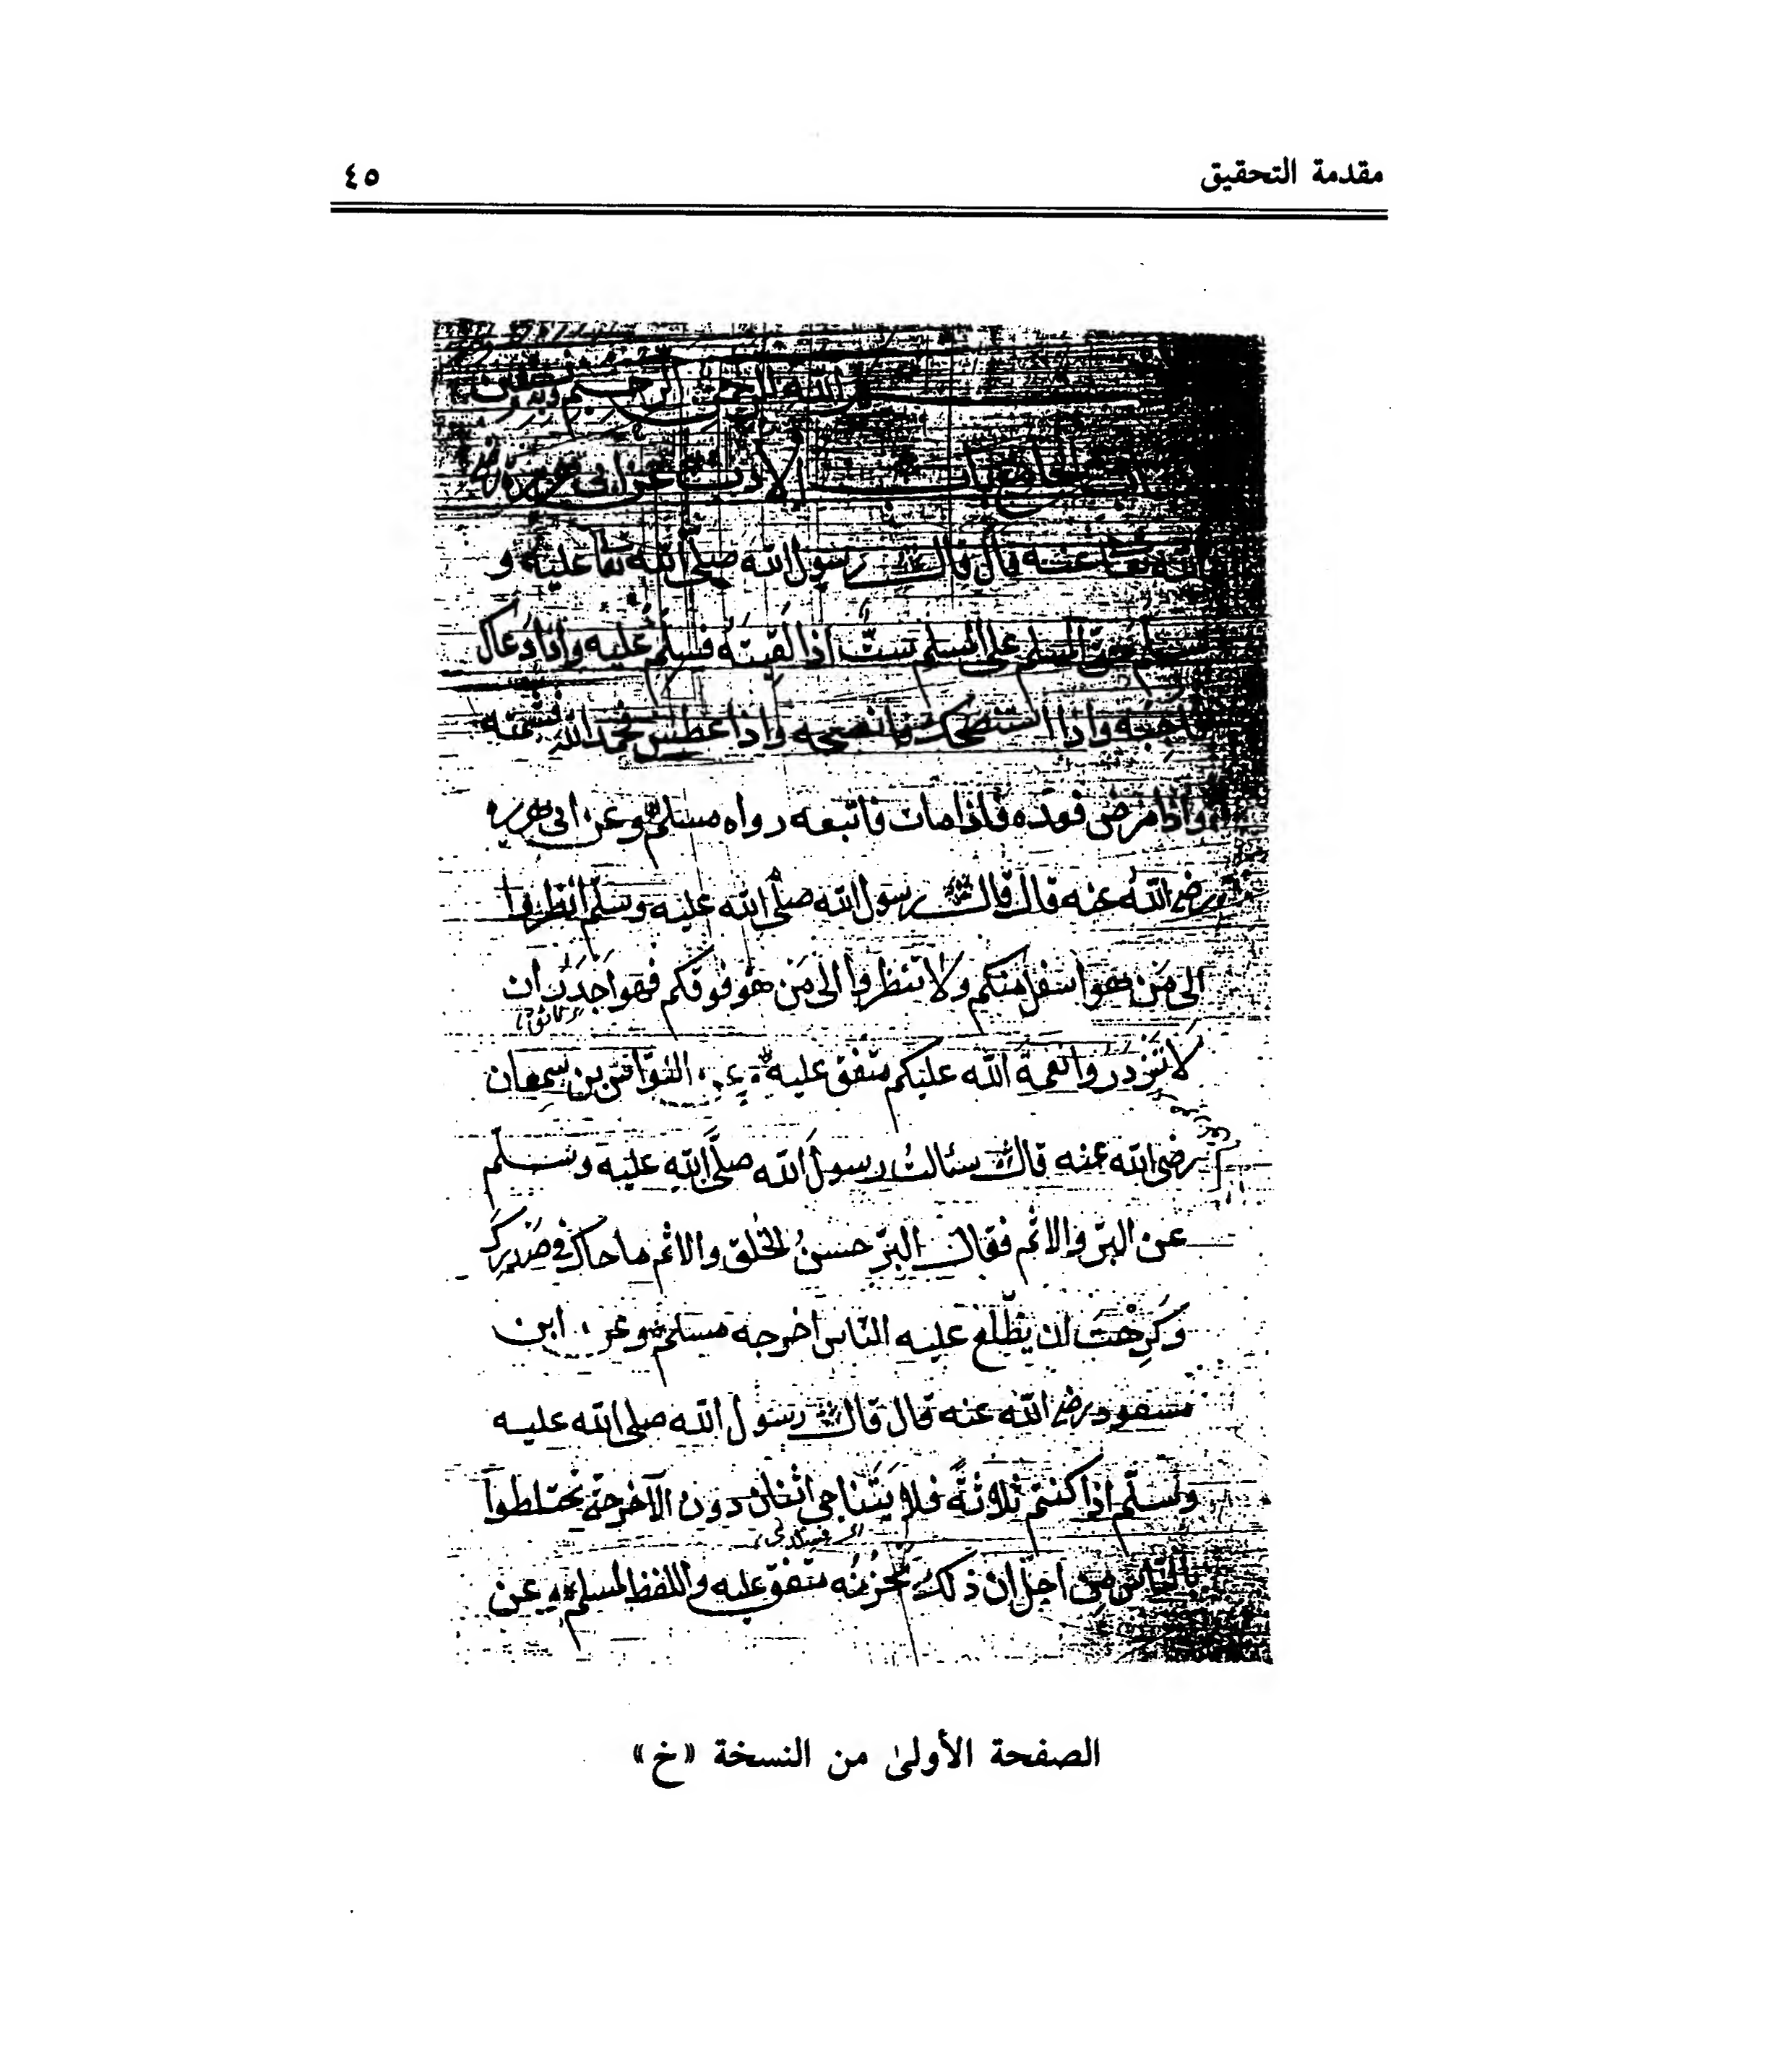 مقدمة التحقيق
٤٥
الله الرحمن الرحيم وبه نستعين
الجامع باب الادب عن ابى هريرة رضى
الله تعا عنه قال قال رسول الله صلى الله تعا عليه و
سلم حق المسلم على المسلم ستٌّ اذا لقيتَهُ فسلِّم عليه واذا دعاك
فاجبه واذا استنصحك فانصحه واذا عطس فحمد الله فشمته
واذا مرض فعده فاذا مات فاتبعه رواه مسلم وعن ابى هريره
رضى الله عنه قال قال رسول الله صلى الله عليه وسلم انظروا
الى مَن هو اسفل منكم ولا تنظروا الى مَن هو فوقكم فهو اَجدَرُ ان
لا تزدروا نعمة الله عليكم متفق عليه وعن النوّاس بن سمعان
رضى الله عنه قال سئالتُ رسولَ الله صلَّى الله عليه وسلم
عن البرّ والاثم فقال البرّ حسنُ الخُلق والاثم ما حاك فى صَدرِكَ
وكَرِهْتَ ان يطّلع عليه الناس اخرجه مسلم وعن ابن
مسعود رضى الله عنه قال قال رسول الله صلى الله عليه
وسلّم اذا كنتم ثلاثةً فلا يَتَناجى اثنان دون الآخر حتى تختلطوا
بالناس مِن اجل ان ذلك يُحزِنُه متفق عليه واللفظ لمسلم وعن
الصفحة الأولىٰ من النسخة «خ»